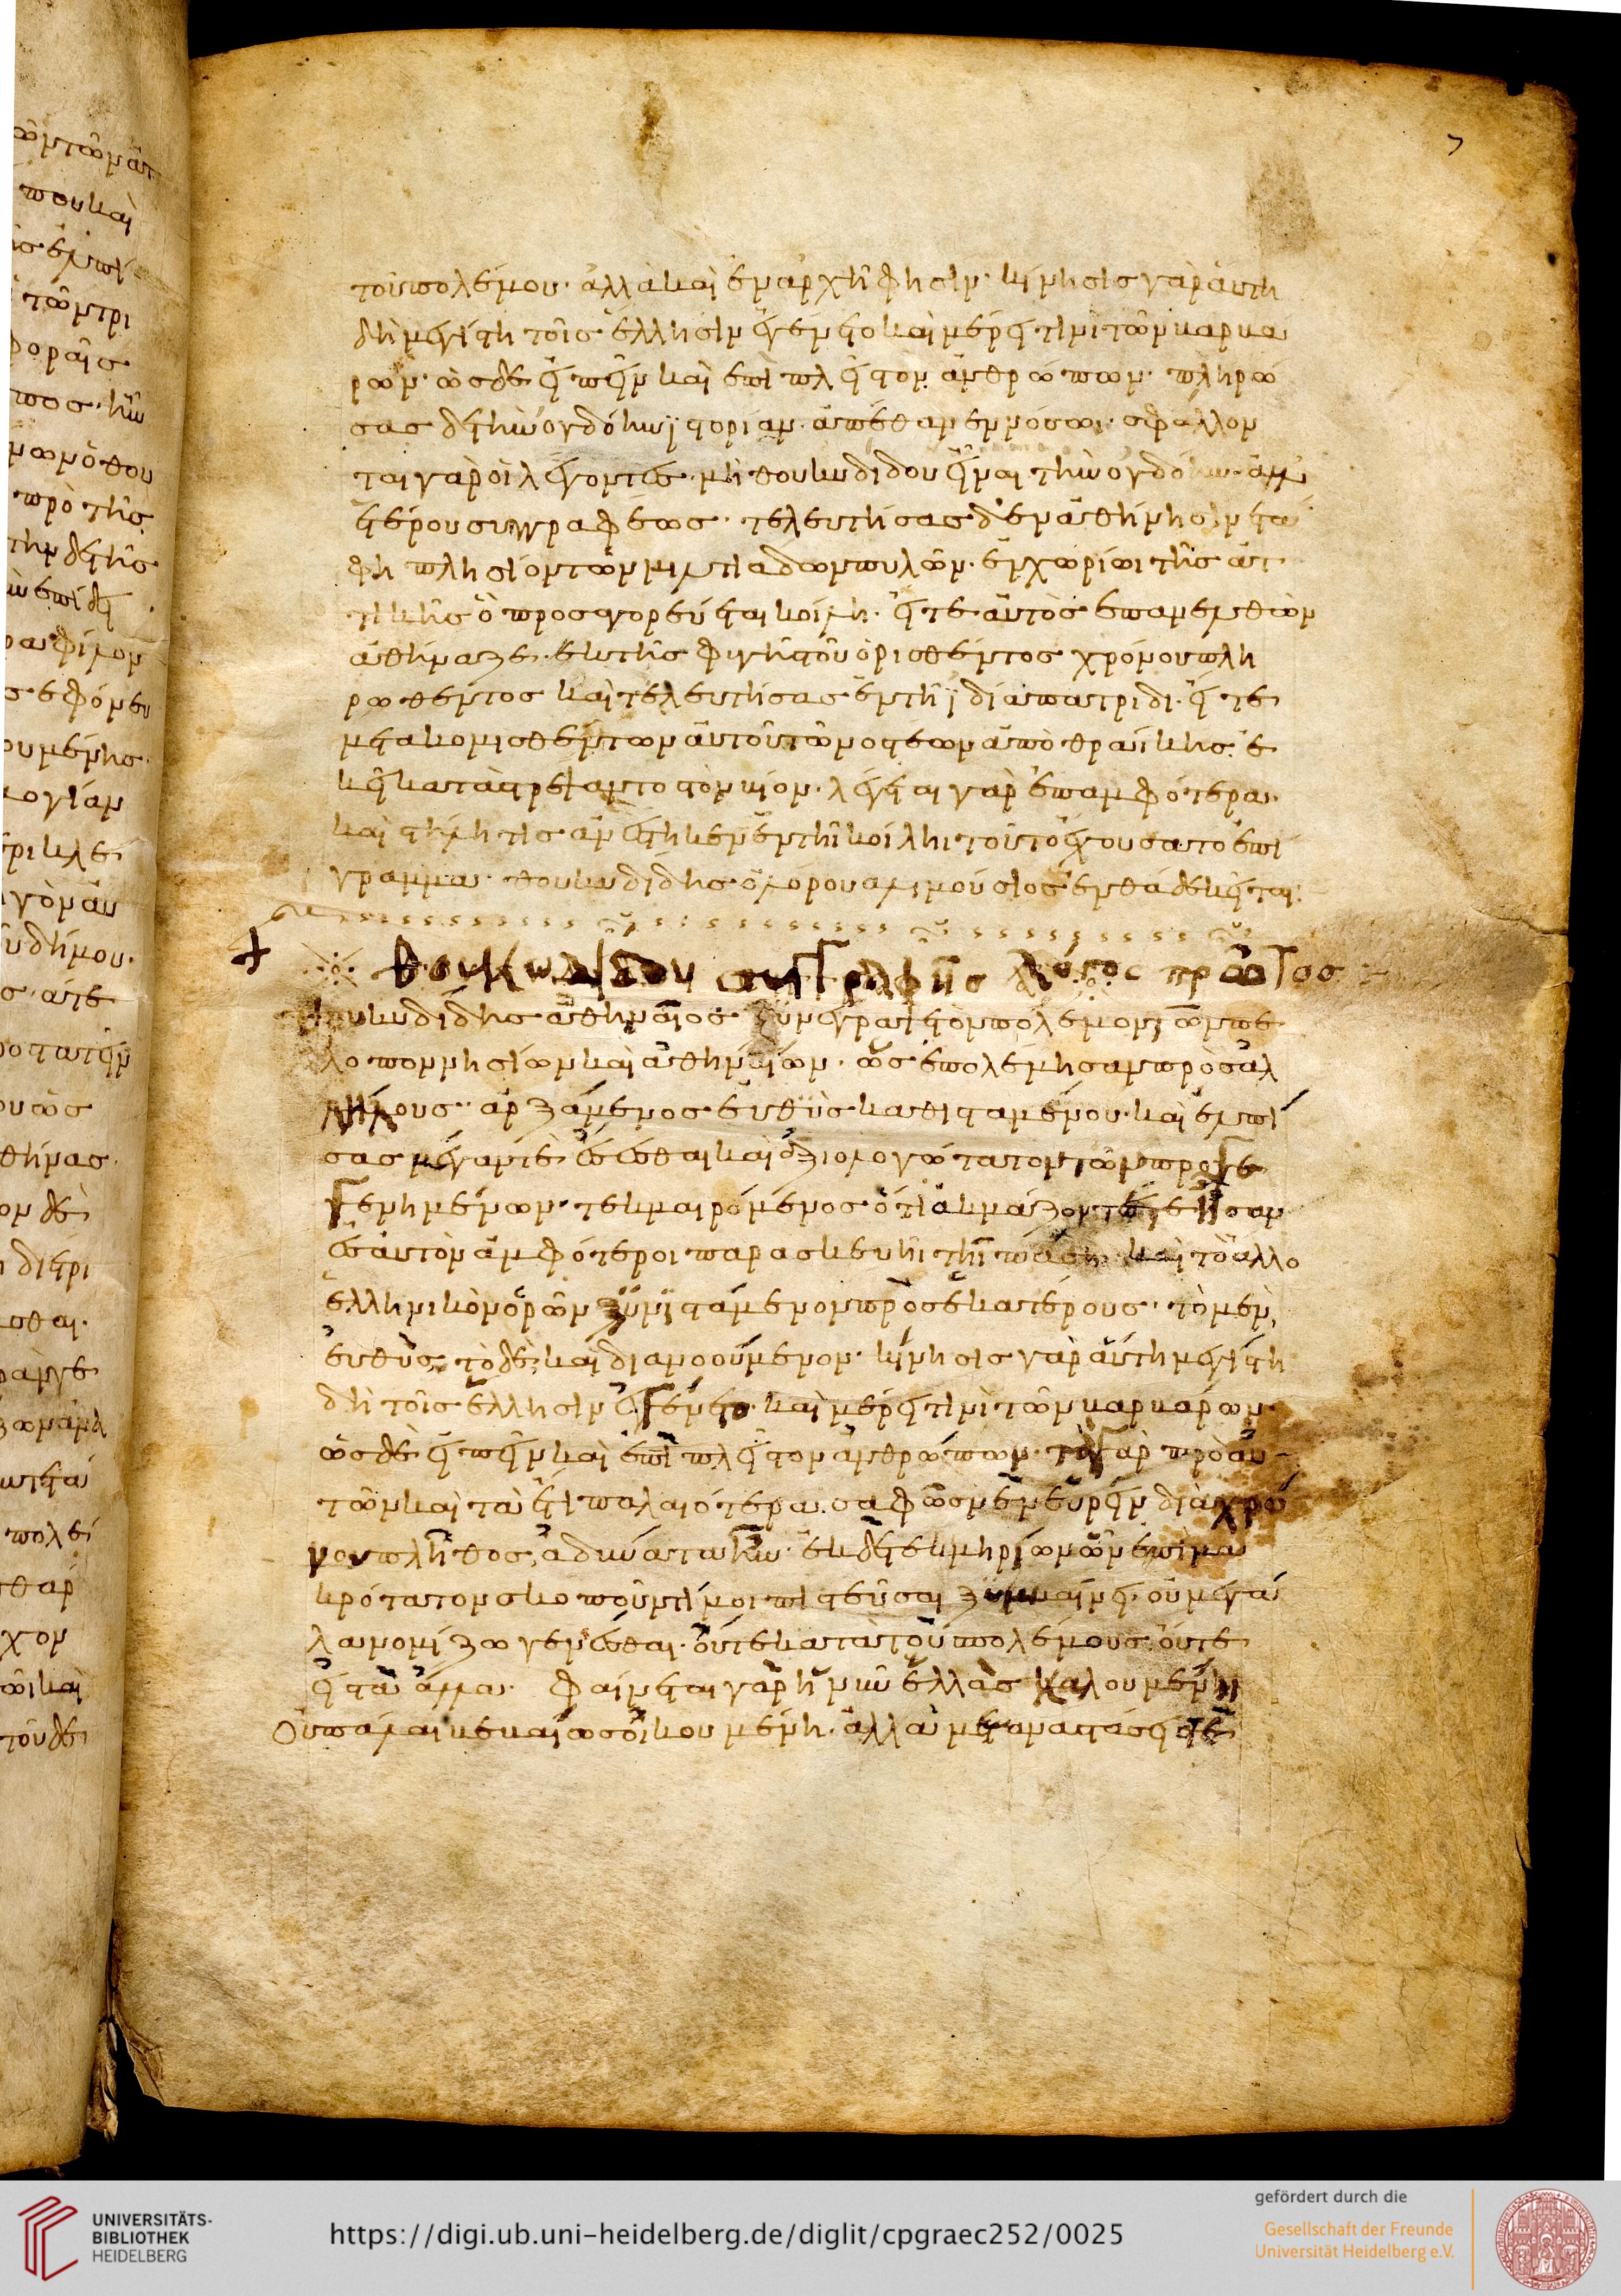 7
τοῦ πολέμου· ἀλλὰ καὶ ἐν ἀρχῆ φησίν· κίνησις γὰρ αὕτη
δὴ μεγίστη τοῖς ἕλλησιν ἐγένετο καὶ μέρει τινὶ τῶν βαρβά
ρων· ὡς δὲ εἰπεῖν καὶ ἐπὶ πλεῖστον ἀνθρώπων· πληρώ
σας δὲ τὴν ὀγδόην ἱστορίαν ἀπέθανεν νόσωι· σφάλλον
ται γὰρ οἱ λέγοντες μὴ θουκυδίδου εἶναι τὴν ὀγδόην· ἀλλ'
ἑτέρου συγγραφέως· τελευτήσας δ' ἐν ἀθήνησιν ἐτά
φη πλησίον τῶν μιλτιάδων πυλῶν· ἐν χωρίωι τῆς ἀτ
τικῆς ὃ προσαγορεύεται κοίλη· εἴτε αὐτὸς ἐπανελθὼν
ἀθήναζε· ἐκ τῆς φυγῆς τοῦ ὁρισθέντος χρόνου πλη
ρωθέντος καὶ τελευτήσας ἐν τῆι ἰδίαι πατρίδι· εἴτε
μετακομισθέντων αὐτοῦ τῶν ὀστέων ἀπὸ θράικης· ἐ
κεῖ καταστρέψαντο τὸν βίον· λέγεται γὰρ ἐπ' ἀμφότερα·
καὶ στήλη τις ἀνέστηκεν ἐν τῆι κοίληι τοῦτο ἔχουσα τὸ ἐπί
γραμμα· θουκυδίδης ὀλόρου ἁλιμούσιος ἐνθάδε κεῖται:
θουκυδίδου συγγραφῆς λόγος πρῶτος
θουκυδίδης ἀθηναῖος ξυνέγραψε τὸν πόλεμον τῶν πε
λοποννησίων καὶ ἀθηναίων· ὡς ἐπολέμησαν πρὸς ἀλ
λήλους· ἀρξάμενος εὐθὺς καθισταμένου· καὶ ἐλπί
σας μέγαν τὲ ἔσεσθαι καὶ ἀξιολογώτατον τῶν προγε
γενημένων· τεκμαιρόμενος ὅτι ἀκμάζοντές τε ἦσαν
ἐς αὐτὸν ἀμφότεροι παρασκευῆι τῆι πάσηι καὶ τὸ ἄλλο
ἑλληνικὸν ὁρῶν ξυνιστάμενον πρὸς ἑκατέρους· τὸ μὲν
εὐθὺς· τὸ δὲ καὶ διανοούμενον· κίνησις γὰρ αὕτη μεγίστη
δὴ τοῖς ἕλλησιν ἐγένετο· καὶ μέρει τινὶ τῶν βαρβάρων·
ὡς δὲ εἰπεῖν καὶ ἐπὶ πλεῖστον ἀνθρώπων· τὰ γὰρ πρὸ αὐ
τῶν καὶ τὰ ἔτι παλαιότερα σαφῶς μὲν εὑρεῖν διὰ χρό
νου πλῆθος, ἀδύνατα ἦν· ἐκ δὲ τεκμηρίων ὧν ἐπὶ μα
κρότατον σκοποῦντί μοι πιστεῦσαι ξυμβαίνει· οὐ μεγά
λα νομίζω γενέσθαι· οὔτε κατὰ τοὺς πολέμους· οὔτε
ἐς τὰ ἄλλα· φαίνεται γὰρ ἡ νῦν ἑλλὰς καλουμένη
οὐ πάλαι βεβαίως οἰκουμένη· ἀλλὰ μεταναστάσεις τὲ
UNIVERSITÄTS-
BIBLIOTHEK
HEIDELBERG
https://digi.ub.uni-heidelberg.de/diglit/cpgraec252/0025
gefördert durch die
Gesellschaft der Freunde
Universität Heidelberg e.V.